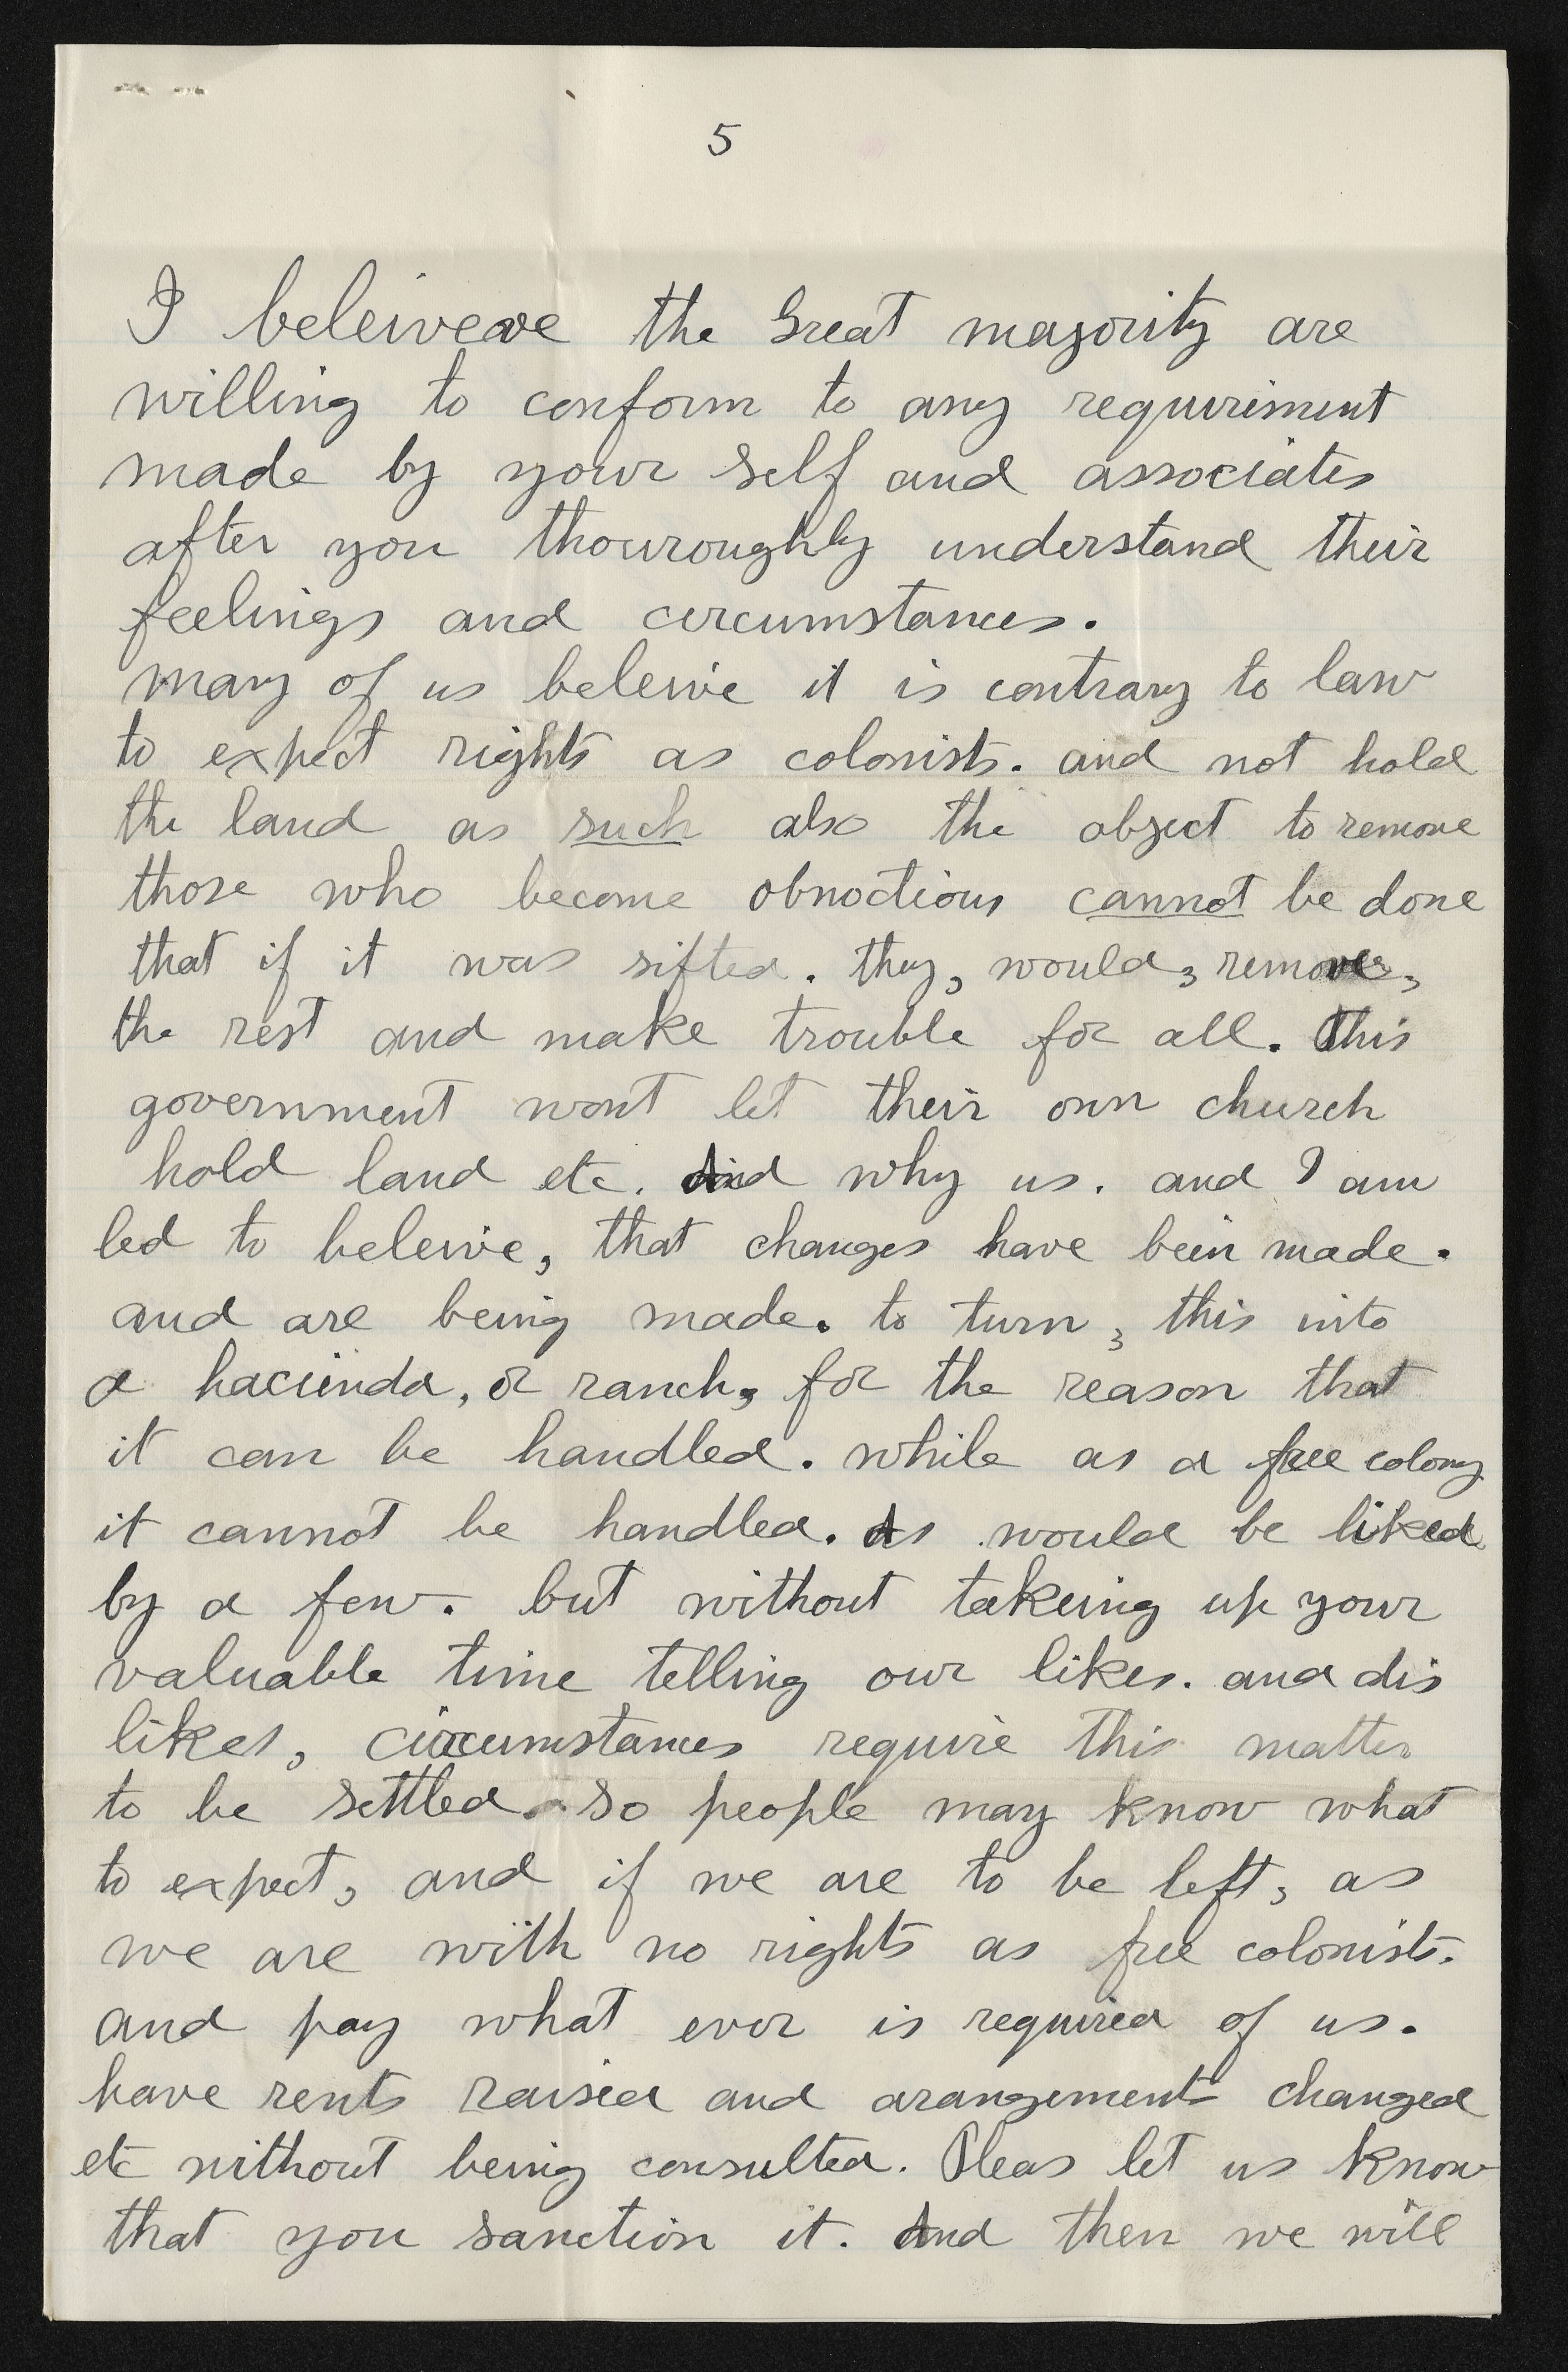 5
I beleiveve the Great majority are
willing to conform to any requiriment
made by your self and associates
after you thouroughly understand their
feelings and circumstances.
many of us beleive it is contrary to law
to expect rights as colonists. and not hold
the land as such also the object to remove
those who become obnoctious cannot be done
that if it was sifted. they, would, remove,
the rest and make trouble for all. This
government wont let their own church
hold land etc. And why us. and I am
led to beleive, that changes have bein made.
and are being made. to turn, this into
a hacienda, or ranch, for the reason that
it can be handled. while as a free colony
it cannot be handled. As would be liked
by a few. but without takeing up your
valuable time telling our likes. and dis
likes, circumstances require this matter
to be settled. So people may know what
to expect, and if we are to be left, as
we are with no rights as free colonists.
and pay what ever is required of us.
have rents raised and arangements changed
etc without being consulted. Pleas let us know
that you sanction it. And then we will